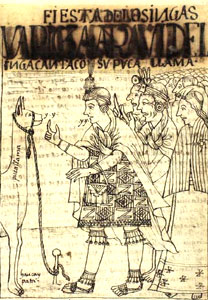 FIESTA DE LOS INGAS
VARICZA ARAVI DEL
INGA CANTA CO SV PVCA LLAMA
y y
puca llama
haucay
pata